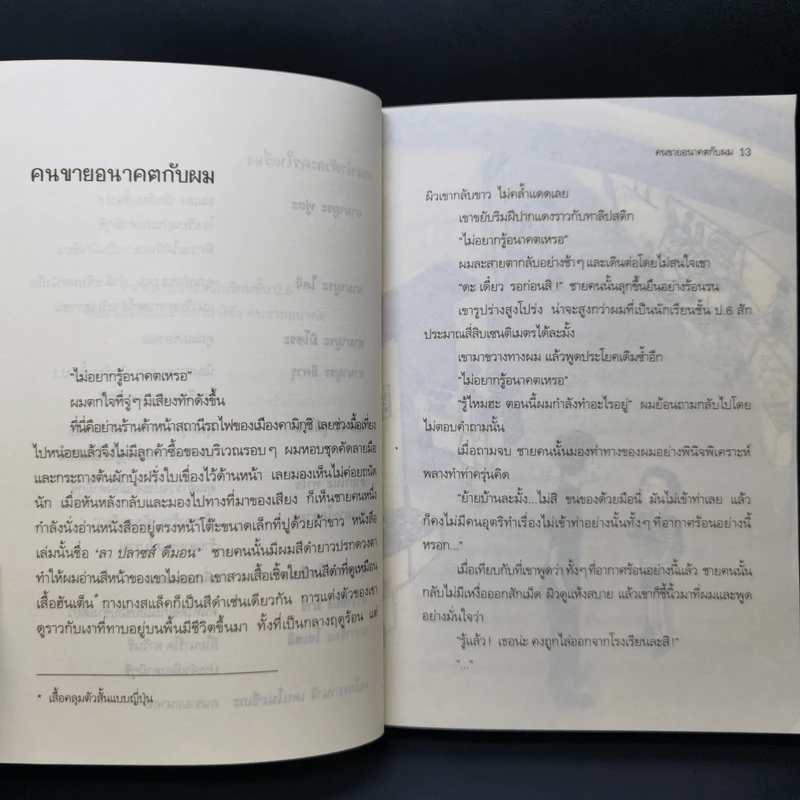 คนขายอนาคตกับผม
"ไม่อยากรู้อนาคตเหรอ"
ผมตกใจที่จู่ๆ มีเสียงทักดังขึ้น
ที่นี่คือย่านร้านค้าหน้าสถานีรถไฟของเมืองคามิกุชิ เลยช่วงมื้อเที่ยง
ไปหน่อยแล้วจึงไม่มีลูกค้าซื้อของบริเวณรอบๆ ผมหอบชุดคัดลายมือ
และกระถางต้นผักบุ้งฝรั่งใบเขื่องไว้ด้านหน้า เลยมองเห็นไม่ค่อยถนัด
นัก เมื่อหันหลังกลับและมองไปทางที่มาของเสียง ก็เห็นชายคนหนึ่ง
กำลังนั่งอ่านหนังสืออยู่ตรงหน้าโต๊ะขนาดเล็กที่ปูด้วยผ้าขาว หนังสือ
เล่มนั้นชื่อ 'ลา ปลาซส์ ดีมอน' ชายคนนั้นมีผมสีดำยาวปรกดวงตา
ทำให้ผมอ่านสีหน้าของเขาไม่ออก เขาสวมเสื้อเชิ้ตใยป่านสีดำที่ดูเหมือน
เสื้อฮันเต็น* กางเกงสแล็คก็เป็นสีดำเช่นเดียวกัน การแต่งตัวของเขา
ดูราวกับเงาที่ทาบอยู่บนพื้นมีชีวิตขึ้นมา ทั้งที่เป็นกลางฤดูร้อน แต่
* เสื้อคลุมตัวสั้นแบบญี่ปุ่น
คนขายอนาคตกับผม 13
ผิวเขากลับขาว ไม่คล้ำแดดเลย
เขาขยับริมฝีปากแดงราวกับทาลิปสติก
"ไม่อยากรู้อนาคตเหรอ"
ผมละสายตากลับอย่างช้าๆ และเดินต่อโดยไม่สนใจเขา
"ดะ เดี๋ยว รอก่อนสิ!" ชายคนนั้นลุกขึ้นยืนอย่างร้อนรน
เขารูปร่างสูงโปร่ง น่าจะสูงกว่าผมที่เป็นนักเรียนชั้น ป.6 สัก
ประมาณสี่สิบเซนติเมตรได้ละมั้ง
เขามาขวางทางผม แล้วพูดประโยคเดิมซ้ำอีก
"ไม่อยากรู้อนาคตเหรอ"
"รู้ไหมฮะ ตอนนี้ผมกำลังทำอะไรอยู่" ผมย้อนถามกลับไปโดย
ไม่ตอบคำถามนั้น
เมื่อถามจบ ชายคนนั้นมองท่าทางของผมอย่างพินิจพิเคราะห์
พลางทำท่าครุ่นคิด
"ย้ายบ้านละมั้ง...ไม่สิ ขนของด้วยมือนี่ มันไม่เข้าท่าเลย แล้ว
ก็คงไม่มีคนอุตริทำเรื่องไม่เข้าท่าอย่างนั้นทั้งๆ ที่อากาศร้อนอย่างนี้
หรอก..."
เมื่อเทียบกับที่เขาพูดว่า ทั้งๆ ที่อากาศร้อนอย่างนี้แล้ว ชายคนนั้น
กลับไม่มีเหงื่อออกสักเม็ด ผิวดูแห้งสบาย แล้วเขาก็ชี้นิ้วมาที่ผมและพูด
อย่างมั่นใจว่า
"รู้แล้ว! เธอน่ะ คงถูกไล่ออกจากโรงเรียนละสิ!"
"..."